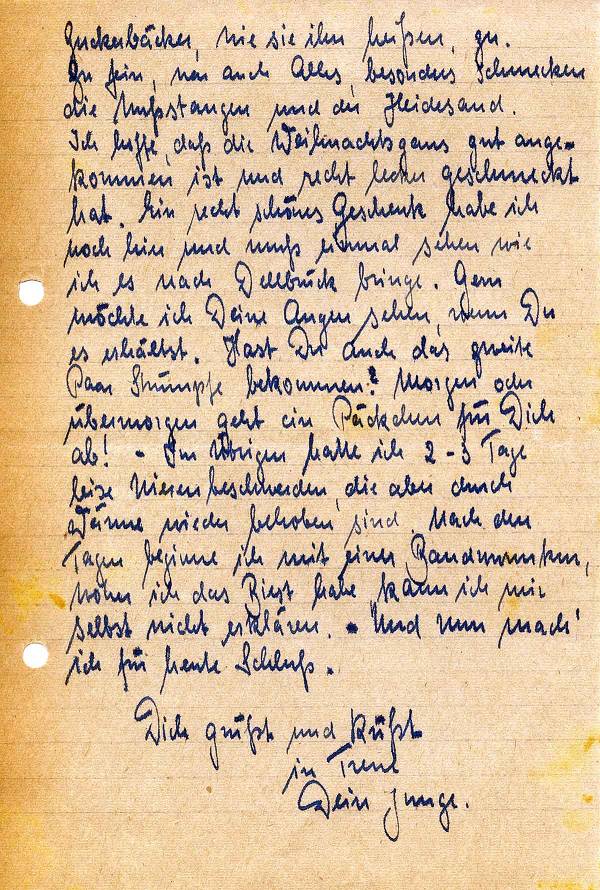 Zuckerbäcker, wie sie ihn heißen, zu.
Zu fein, war auch Alles, besonders Schmecken
die Nußstangen und der Heidesand.
Ich hoffe, daß die Weihnachtsgans gut ange-
kommen ist und recht lecker geschmeckt
hat. Ein recht schönes Geschenk habe ich
noch hier und muß einmal sehen wie
ich es nach Dellbrück bringe. Gern
möchte ich Deine Augen sehen, wenn Du
es erhältst. Hast Du auch das zweite
Paar Strümpfe bekommen? Morgen oder
übermorgen geht ein Päckchen für Dich
ab! - Im Übrigen hatte ich 2-3 Tage
leise Nierenbeschwerden, die aber durch
Wärme wieder behoben sind. Nach den
Tagen beginne ich mit einer Bandwurmkur,
woher ich das Biest habe, kann ich mir
selbst nicht erklären. - Und nun mach'
ich für heute Schluß.
Dich grüßt und küßt
in Treue
Dein Junge.